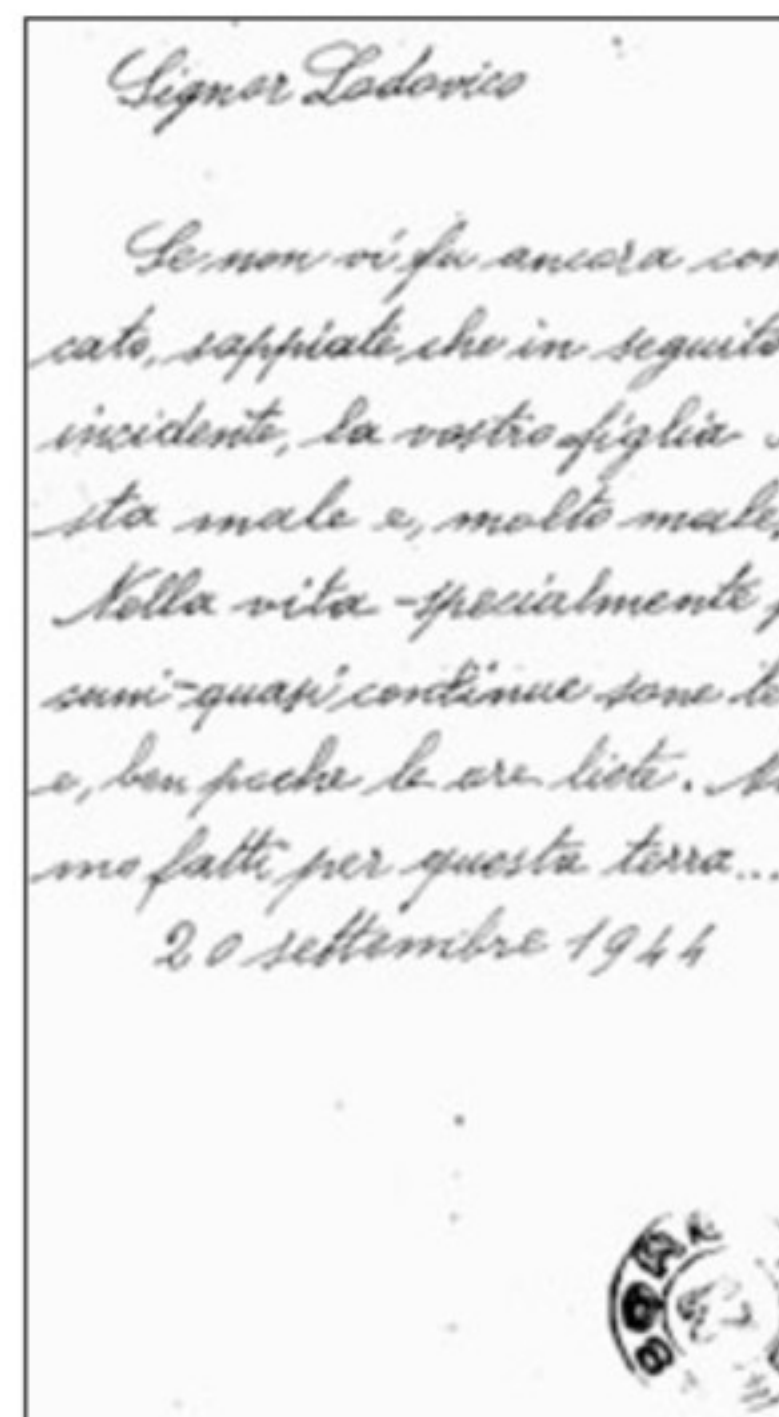 Signor Lodovico
Se non vi fu ancora com
cato, sappiate che in seguito
incidente, la vostra figlia
sta male e, molto male,
Nella vita - specialmente
cumi - quasi continue sono le
e, ben poche le ore liete. No
mo fatti per questa terra...
20 settembre 1944